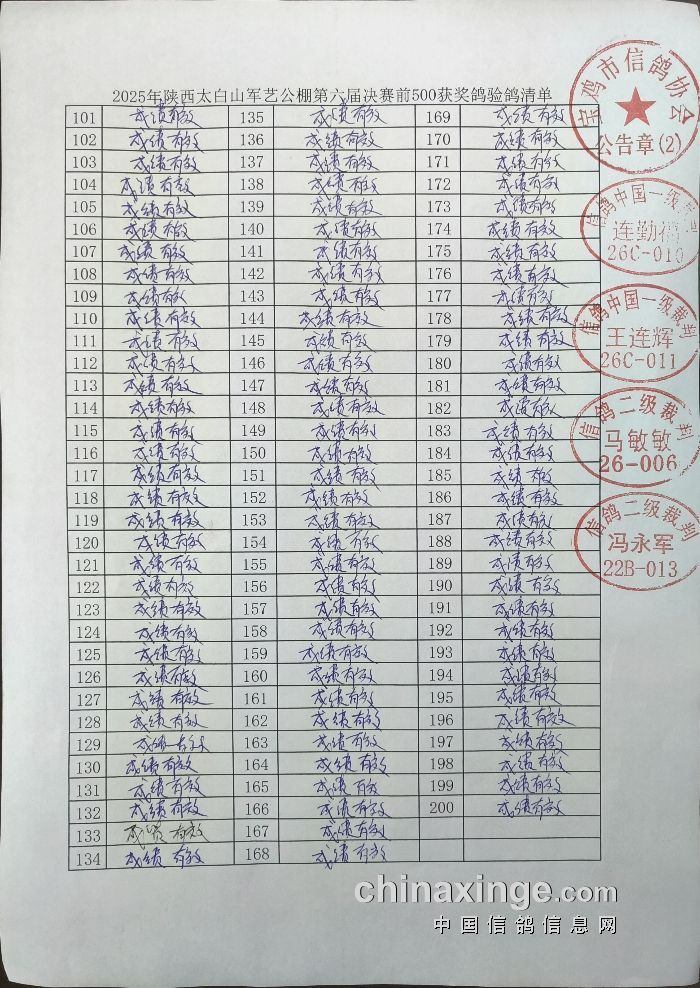 2025年陕西太白山军艺公棚第六届决赛前500获奖鸽验鸽清单
101 成绩有效 135 成绩有效 169 成绩有效
102 成绩有效 136 成绩有效 170 成绩有效
103 成绩有效 137 成绩有效 171 成绩有效
104 成绩有效 138 成绩有效 172 成绩有效
105 成绩有效 139 成绩有效 173 成绩有效
106 成绩有效 140 成绩有效 174 成绩有效
107 成绩有效 141 成绩有效 175 成绩有效
108 成绩有效 142 成绩有效 176 成绩有效
109 成绩有效 143 成绩有效 177 成绩有效
110 成绩有效 144 成绩有效 178 成绩有效
111 成绩有效 145 成绩有效 179 成绩有效
112 成绩有效 146 成绩有效 180 成绩有效
113 成绩有效 147 成绩有效 181 成绩有效
114 成绩有效 148 成绩有效 182 成绩有效
115 成绩有效 149 成绩有效 183 成绩有效
116 成绩有效 150 成绩有效 184 成绩有效
117 成绩有效 151 成绩有效 185 成绩有效
118 成绩有效 152 成绩有效 186 成绩有效
119 成绩有效 153 成绩有效 187 成绩有效
120 成绩有效 154 成绩有效 188 成绩有效
121 成绩有效 155 成绩有效 189 成绩有效
122 成绩有效 156 成绩有效 190 成绩有效
123 成绩有效 157 成绩有效 191 成绩有效
124 成绩有效 158 成绩有效 192 成绩有效
125 成绩有效 159 成绩有效 193 成绩有效
126 成绩有效 160 成绩有效 194 成绩有效
127 成绩有效 161 成绩有效 195 成绩有效
128 成绩有效 162 成绩有效 196 成绩有效
129 成绩有效 163 成绩有效 197 成绩有效
130 成绩有效 164 成绩有效 198 成绩有效
131 成绩有效 165 成绩有效 199 成绩有效
132 成绩有效 166 成绩有效 200 成绩有效
133 成绩有效 167 成绩有效
134 成绩有效 168 成绩有效
宝鸡市信鸽协会
公告章(2)
信鸽中国一级裁判
连勤
26C-010
信鸽中国一级裁判
王连辉
26C-011
信鸽二级裁判
马敏敏
26-006
信鸽二级裁判
冯永军
22B-013
chinaxinge.com
中国信鸽信息网